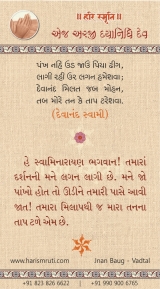 ॥ હરિ સ્મૃતિ ॥
એજ અરજી દયાનિધિ દેવ
પંખ નહિં ઉડ જાઉં પિયા ઢીગ,
લાગી રહી ઉર લગન હમેશવા;
દેવાનંદ મિલત જબ મોહન,
તબ મોરે તન કે તાપ ટરેશવા.
(દેવાનંદ સ્વામી)
હે સ્વામિનારાયણ ભગવાન! તમારાં
દર્શનની મને લગન લાગી છે. મને જો
પાંખો હોત તો ઊડીને તમારી પાસે આવી
જાત! તમારા મિલાપથી જ મારા તનના
તાપ ટળે એમ છે.
www.harismruti.com Jnan Baug - Vadtal
+91 823 826 6622 | +91 990 900 6765